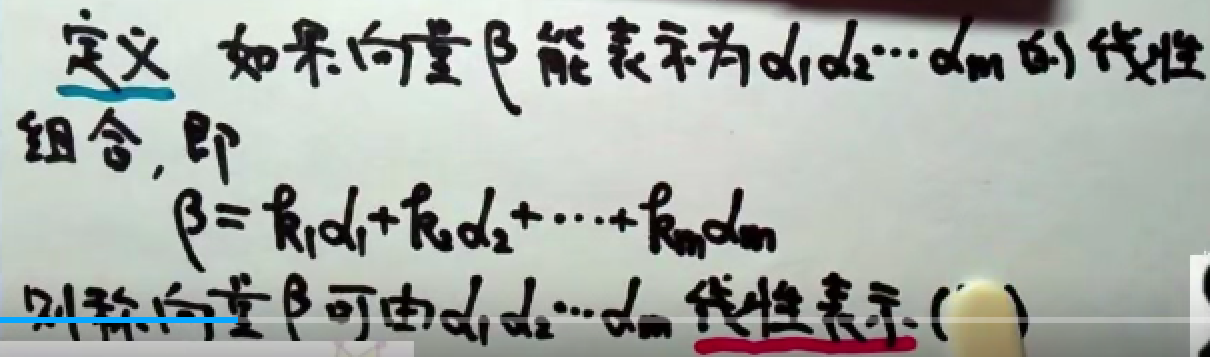 定义 如果向量β能表示为α₁α₂…αₘ的线性
组合,即
β=k₁α₁+k₂α₂+…+kₘαₘ
则称向量β可由α₁α₂…αₘ线性表示.( )